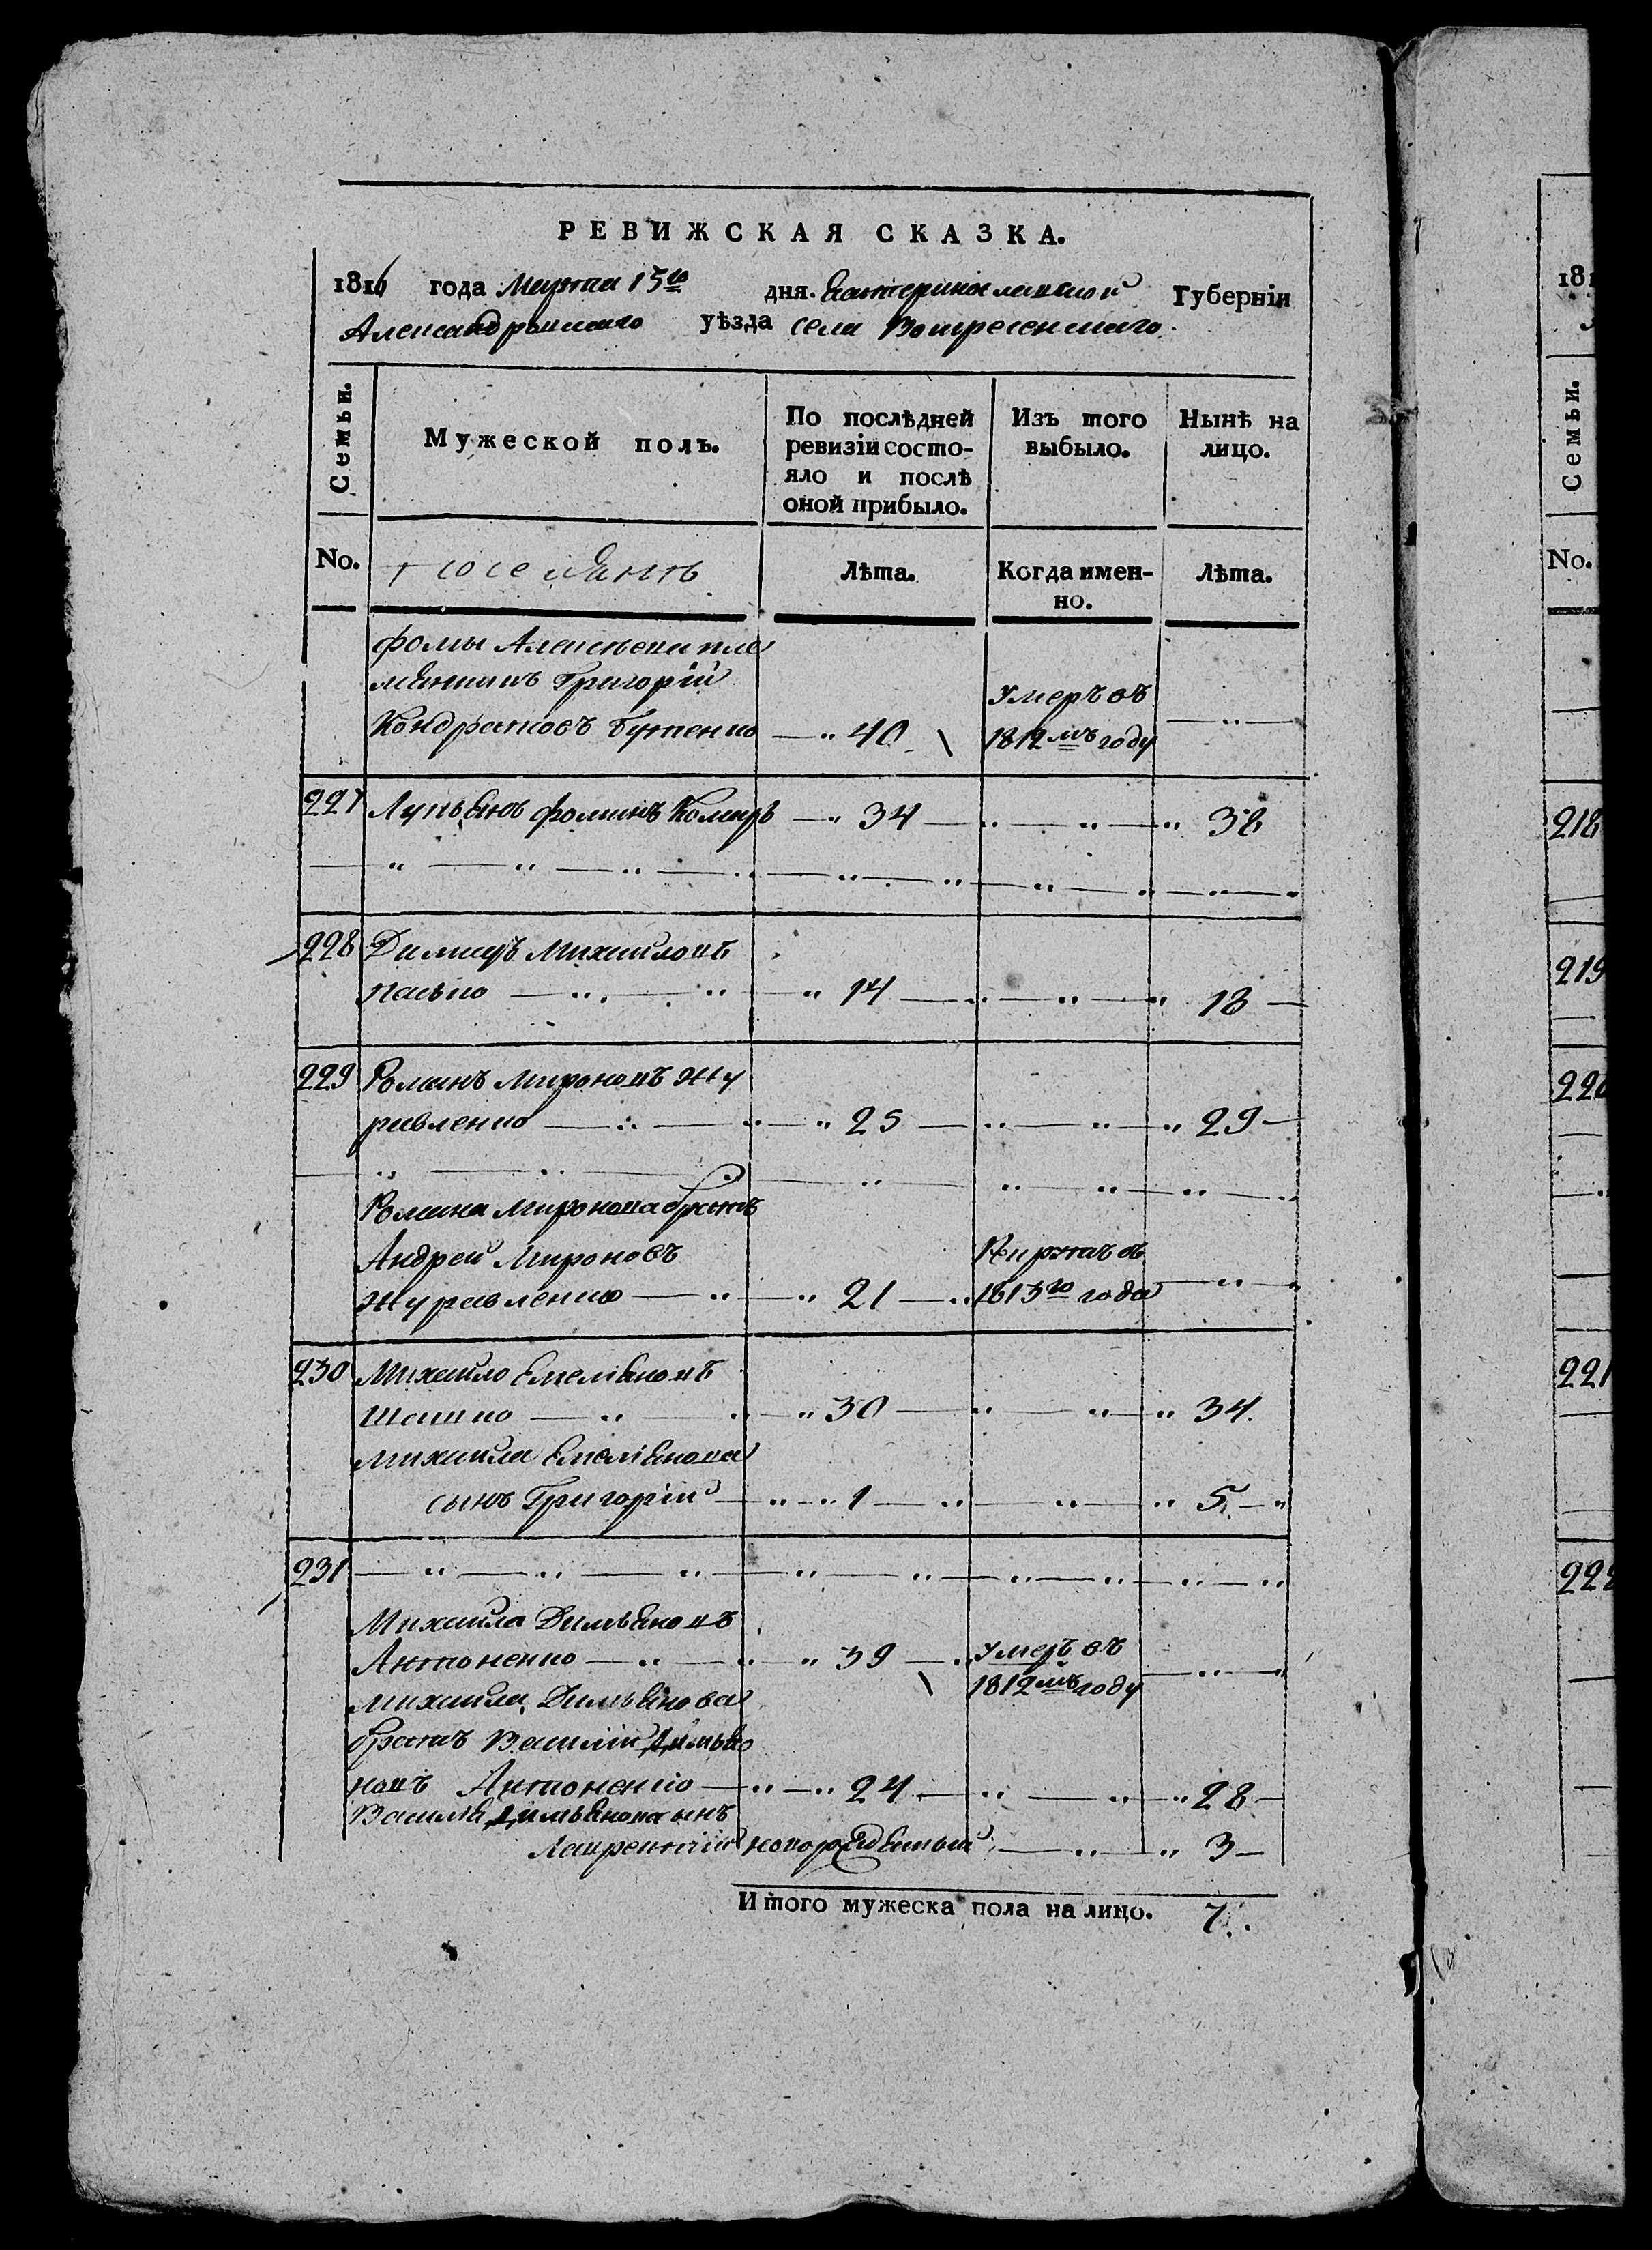 РЕВИЖСКАЯ СКАЗКА.
1816 года Марта 15го дня. Екатеринославской Губерніи
Александровскаго уѣзда села Воскресенскаго.
Семьи.
Мужеской полъ.
По послѣдней ревизіи состо-
яло и послѣ
оной прибыло.
Изъ того
выбыло.
Нынѣ на
лицо.
No.
Лѣта.
Когда имен-
но.
Лѣта.
Фомы Алексѣева пле
мянникъ Григорій
Кондратовъ Бутенко — 40
Умеръ въ
1812мъ году
227 Лукьянъ Фоминъ Комаръ — 34 — 38
228 Михайловъ
14 — 18
229 Романъ Мироновъ Жу
равленко — 25 — 29
Романа Миронова братъ
Андрей Мироновъ
Журавленко — 21
1813го года
230 Михайло Емельяновъ
30 — 34.
Михайла Емельянова
сынъ Григорій — 1 — 5
231
Михайла Димьяновъ
Антоненко — 39
Умеръ въ
1812мъ году
Михайла Димьянова
братъ Василій Димья
новъ Антоненко — 24 — 28
Василія Димьянова сынъ
Лаврентій новорожденный — 3
Итого мужеска пола на лицо. 7.
181
Семьи.
No.
218
219
220
221
222